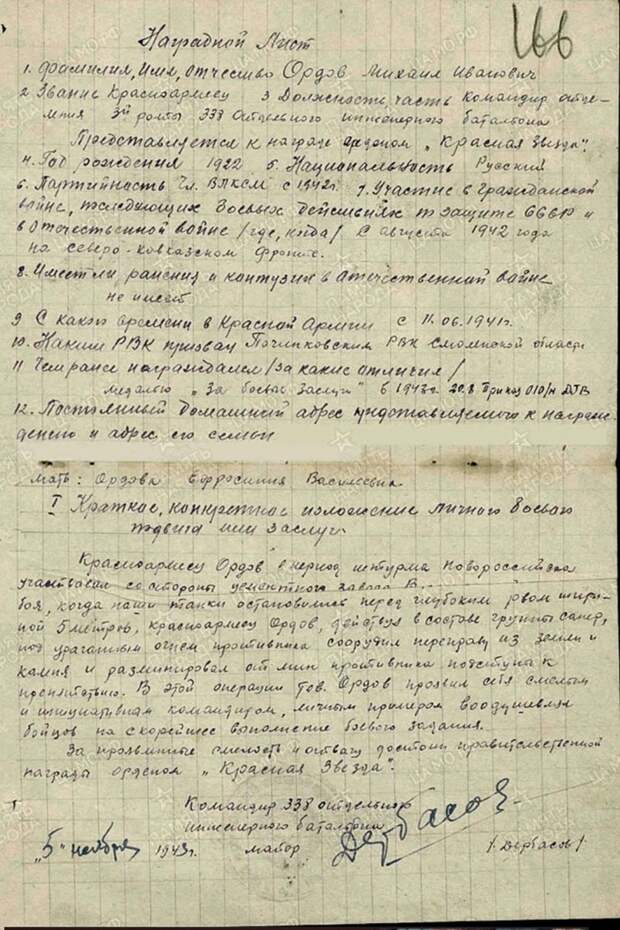 166
Наградной Лист
1. Фамилия, Имя, Отчество Ордов Михаил Иванович
2 Звание Красноармеец 3 Должность, часть Командир отде-
ления 3й роты 338 Отдельного инженерного баталиона
Представляется к награде орденом „Красная Звезда".
4. Год рождения 1922 5. Национальность Русский
6. Партийность Чл. ВЛКСМ с 1942г. 7. Участие в гражданской
войне, последующих боевых действиях по защите СССР и
в Отечественной войне /где, когда/ С августа 1942 года
на северо-Кавказском фронте.
8. Имеет ли ранения и контузии в отечественной войне
не имеет
9 С какого времени в Красной Армии с 11.06.1941г.
10. Каким РВК призван Починковским РВК Смоленской области
11 Чем ранее награждался /за какие отличия/
медалью „За боевые Заслуги" в 1943г. 20.8 Приказ 010/н
12. Постоянный домашний адрес представляемого к награж-
дению и адрес его семьи
мать: Ордова Ефросиния Васильевна
I Краткое, конкретное изложение личного боевого
подвига или заслуг.
Красноармеец Ордов в период штурма Новороссийска
участвовал со стороны цементного завода В
боя, когда наши танки остановились перед глубоким рвом шири-
ной 5 метров, красноармеец Ордов, действуя в составе группы сапер,
под ураганным огнем противника соорудил переправу из земли и
камня и разминировал от мин противника подступы к
препятствию. В этой операции тов. Ордов проявил себя смелым
и инициативным командиром, личным примером воодушевлял
бойцов на скорейшее выполнение боевого задания.
За проявленные смелость и отвагу достоин правительственной
награды орденом „Красная Звезда".
Командир 338 отдельного
инженерного баталиона
„5" ноября 1943г. майор Дербасов /Дербасов/